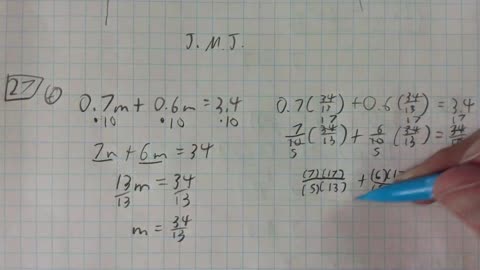 J.M.J.
27 4
0.7m + 0.6m = 3.4
·10 ·10 ·10
7m + 6m = 34
13m = 34
13 13
m = 34/13
0.7(34/13) + 0.6(34/13) = 3.4
17 17 17
7/10(34/13) + 6/10(34/13) = 34/10
5 5
(7)(17)/(5)(13) + (6)(17